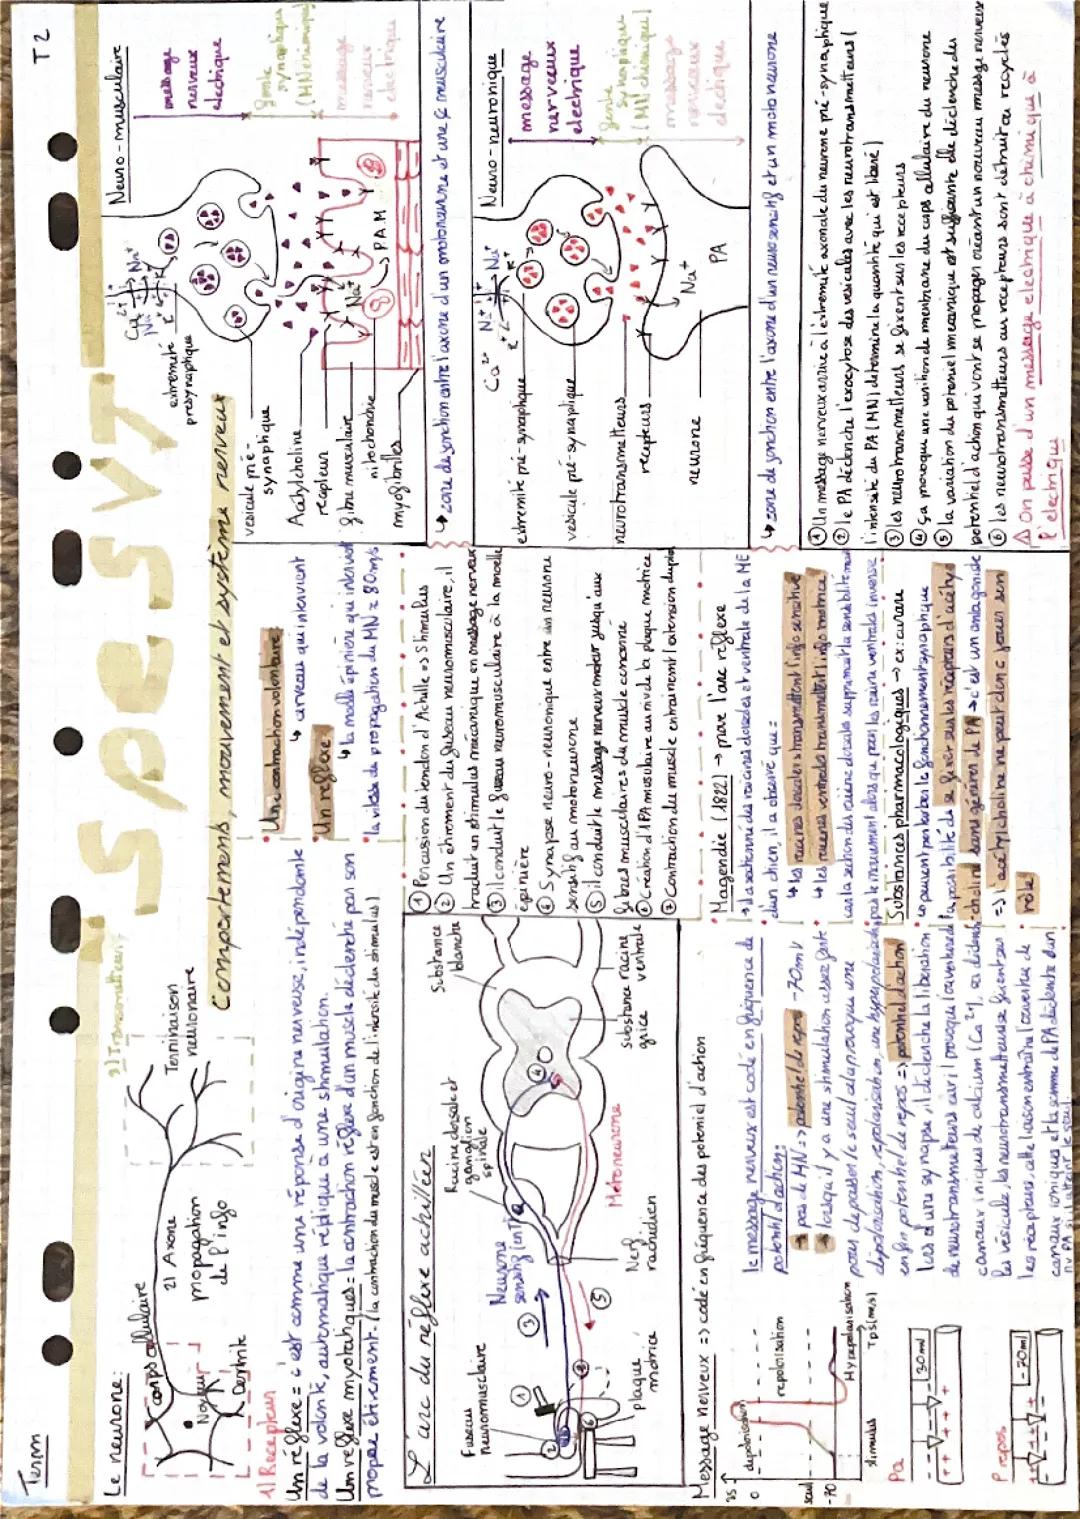 Term
T2
SPE SVT
Comportements, mouvement et système nerveux
Le neurone:
corps cellulaire
Noyau
Dentrite
1) Recepteur
2) Axone
propagation
de l'info
3) Transmetteur
Terminaison
neuronaire
Un réflexe = c'est comme une réponse d'origine nerveuse, indépendante
de la volonté, automatique rédique à une stimulation.
Un reflexe myotatiques = la contraction réflexe d'un muscle déclenché par son
propre étirement. (la contraction du muscle est en fonction de l'intensité du stimulus)
• Une contraction volontaire:
↳ cerveau qui intervient
• Un reflexe:
↳ la moelle épinière qui intervient
• la vitesse de propagation du MN ≈ 80 m/s
L'arc du réflexe achilléen
Fuseau
neuromusculaire
Neurone
sensitif (entrée)
Racine dorsale et
ganglion
spinale
Substance
blanche
substance
grise
racine
ventrale
Motoneurone
Nerf
rachidien
plaque
motrice
① ② ③ ④ ⑤ ⑥
① Percusion du tendon d'Achille => Stimulus
② Un étirement du fuseau neuromusculaire, il
traduit un stimulus mécanique en message nerveux
③ il conduit le fuseau neuromusculaire à la moelle
épinière
④ Synapse neuro-neuronique entre un neurone
sensitif au motoneurone
⑤ il conduit le message nerveux moteur jusqu'aux
fibres musculaires du muscle concerné
⑥ Création d'1 PA musculaire au niv de la plaque motrice
⑦ Contraction du muscle entrainent l'extension du pied
Message nerveux => codé en fréquence des potentiel d'action
35
0
seuil
-70
dépolarisation
repolarisation
Hyperpolarisation
stimulus
Tps (ms)
Pa
30 mV
P repos
-70mV
le message nerveux est codé en fréquence de
potentiel d'action:
→ pas de MN => potentiel de repos -70mV
→ lorsqu'il y a une stimulation assez forte
pour dépasser le seuil cela provoque une
dépolarisation, repolarisation, une hyperpolarisation
enfin potentiel de repos => potentiel d'action
Lors d'une synapse, il déclenche la liberation
de neurotransmetteurs car il provoque l'ouverture d
canaux ioniques de calcium (Ca²⁺), se déclenche
les vésicule, les neurotransmetteurs se fixent sur
les récepteurs, cette liaison entraîne l'ouverture de
canaux ioniques et la somme de PA déclenche d'un
nv PA si il atteint le seuil.
• Magendie (1822) → prouve l'arc réflexe
→ il a sectionné des racines dorsales et ventrale de la ME
d'un chien, il a observé que:
↳ les racines dorsales transmettent l'info sensitive
↳ les racines ventrales transmettent l'info motrice
car la section des racine dorsales supprimait la sensibilité mais
pas le mouvement alors que pour les racine ventrales inverse
Substances pharmacologiques → ex: curare
↳ peuvent perturber le fonctionnement synaptique
la possibilité de se fixer sur les récepteurs d'acéty
-choline sans générer de PA → c'est un antagoniste
=> l'acétylcholine ne peut donc pas jouer son
rôle
Neuro-musculaire
Ca²⁺
Na⁺
K⁺
extremité
presynaptique
vesicule pré-
synaptique
Acétylcholine
recepteur
fibre musculaire
mitochondrie
myofibrilles
Na⁺
P.A.M
message
nerveux
électrique
fente
synaptique
(MN chimique)
message
nerveux
électrique
↳ zone de jonction entre l'axone d'un motoneurone et une f musculaire
Neuro-neuronique
Ca²⁺
Na⁺
K⁺
extremité pré-synaptique
vesicule pré-synaptique
neurotransmetteurs
recepteurs
neurone
Na⁺
PA
message
nerveux
electrique
fente
synaptique
(MN chimique)
message
nerveux
électrique
↳ zone de jonction entre l'axone d'un neurone sensitif et un motoneurone
① Un message nerveux arrive à l'extremité axonale du neurone pré-synaptique
② le PA déclenche l'exocytose des vésicules avec les neurotransmetteurs (
l'intensité du PA (MN) détermine la quantité qui est liberé)
③ les neurotransmetteurs se fixent sur les recepteurs
④ ça provoque une variation de membrane du corps cellulaire du neurone
⑤ la variation du potentiel mécanique est suffisante elle déclenche des
potentiel d'action qui vont se propager créant un nouveau message nerveux
⑥ les neurotransmetteurs au recepteurs sont détruit ou recyclés
⚠ On passe d'un message électrique à chimique à
l'électrique